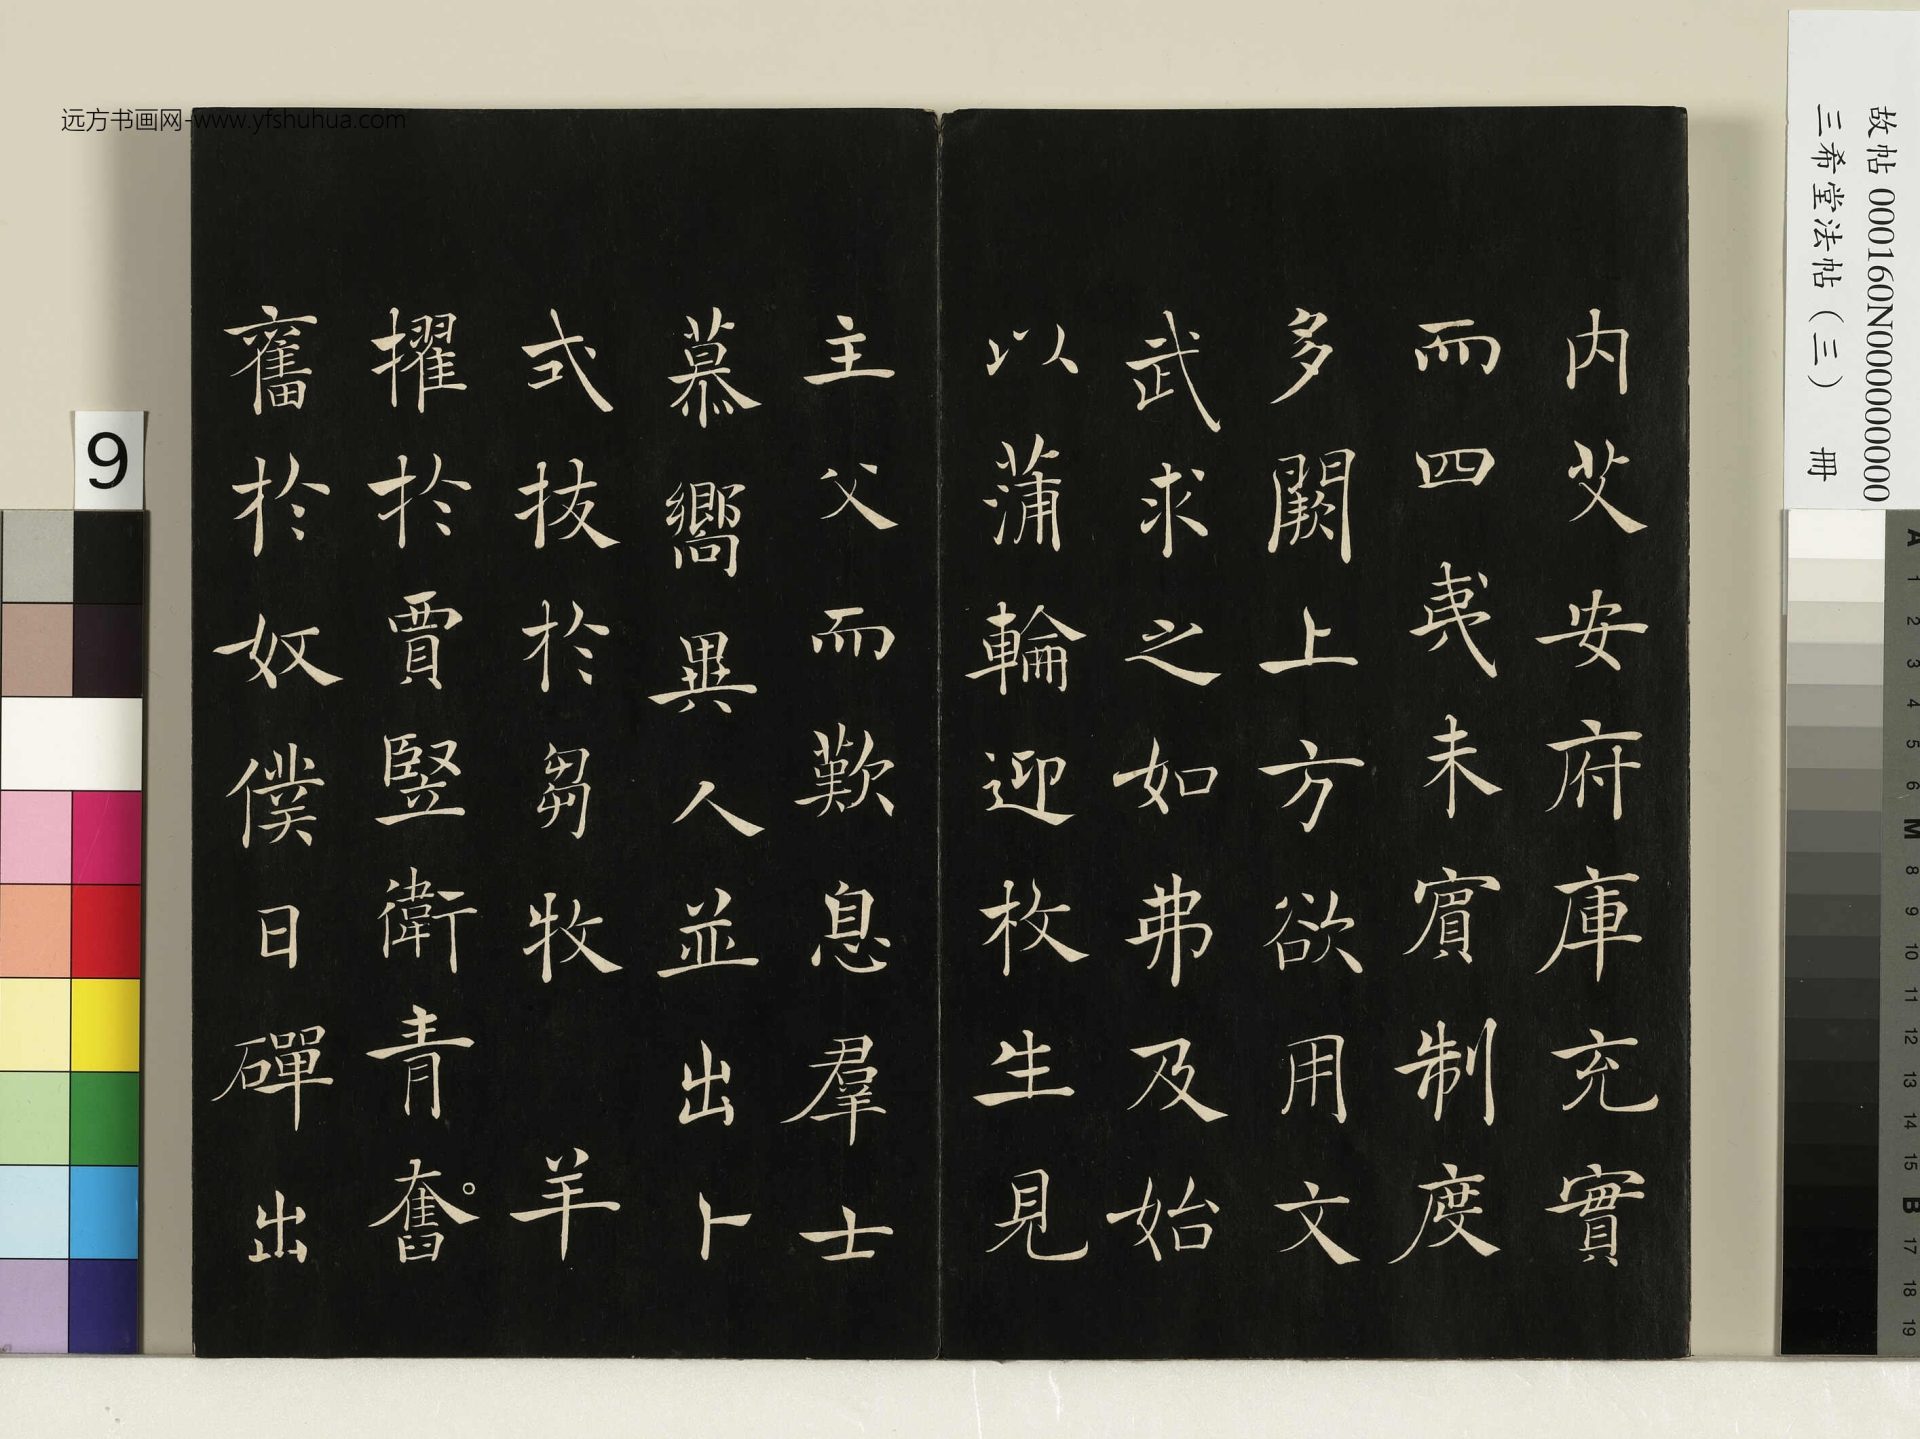 内艾安府庫充實
而四夷未賓制度
多闕上方欲用文
武求之如弗及始
以蒲輪迎枚生見
主父而歎息羣士
慕嚮異人並出卜
式拔於芻牧羊
擢於賈豎衛青奮
奮於奴僕日磾出
远方书画网-www.yfshuhua.com
故帖 000160N000000000
三希堂法帖（三） 冊
9
A 1 2 3 4 5 6 M 8 9 10 11 12 13 14 15 B 17 18 19